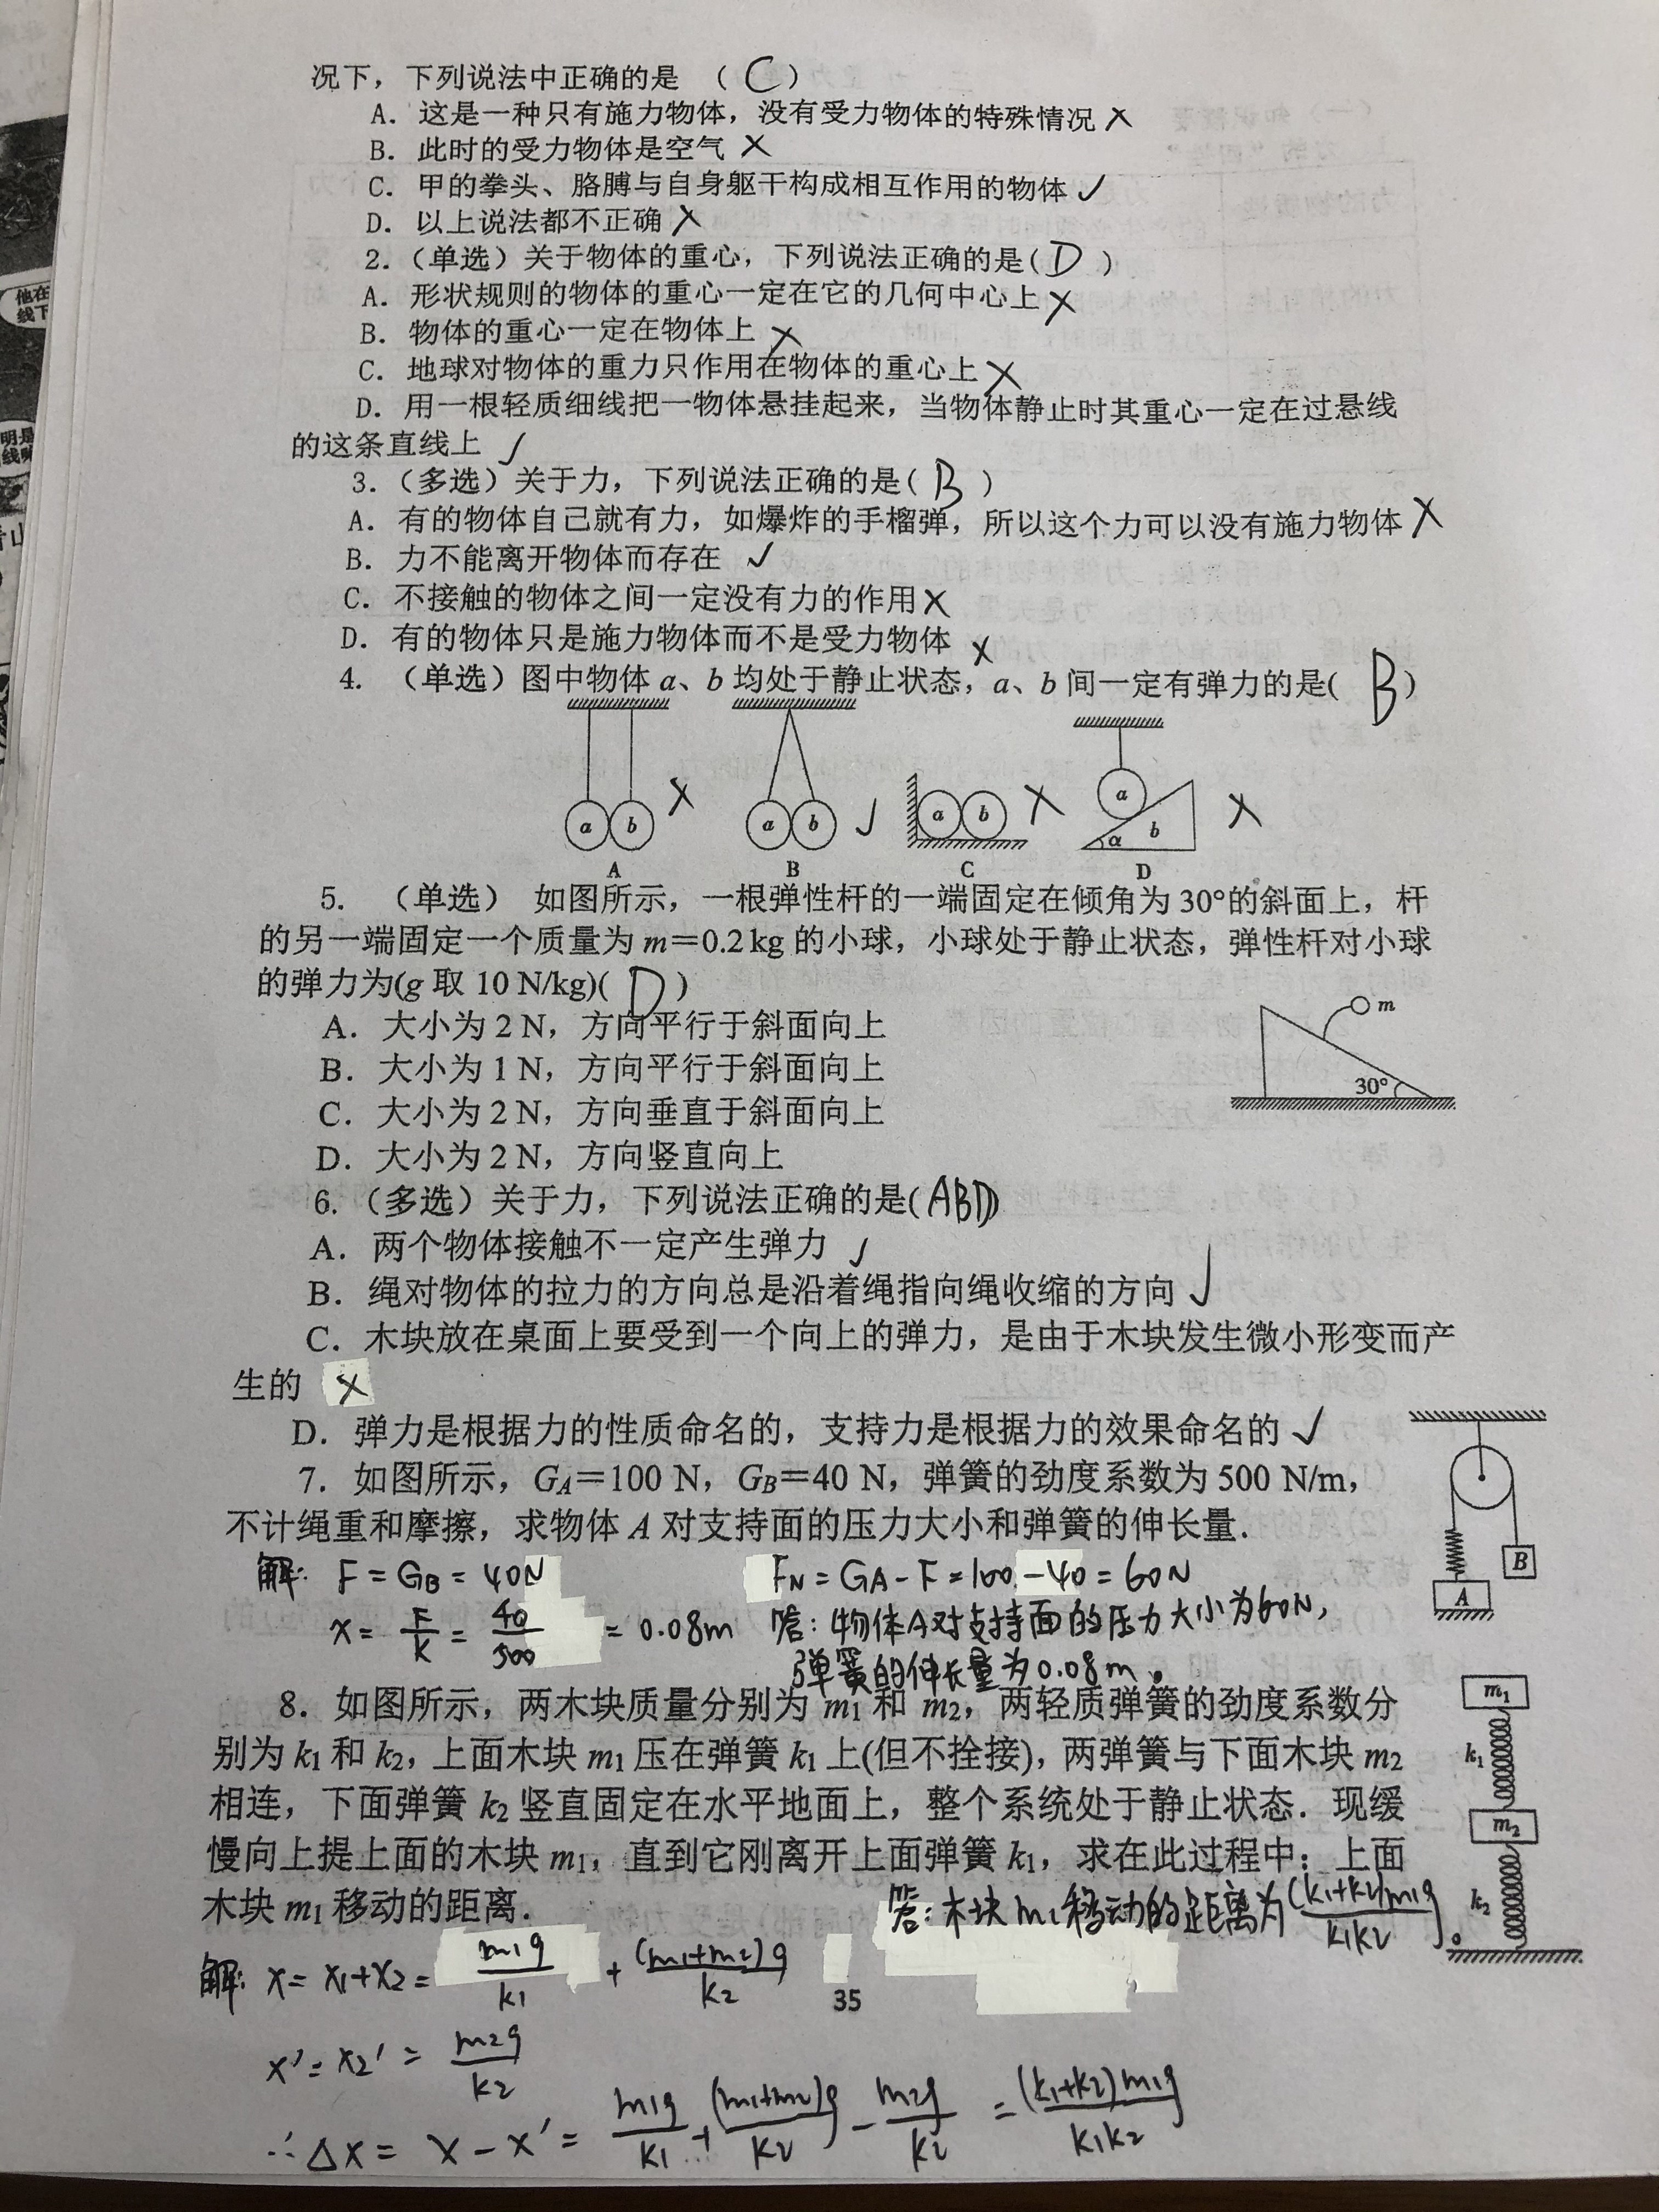 况下，下列说法中正确的是 （ C ）
A．这是一种只有施力物体，没有受力物体的特殊情况 ×
B．此时的受力物体是空气 ×
C．甲的拳头、胳膊与自身躯干构成相互作用的物体 ✓
D．以上说法都不正确 ×
2．（单选）关于物体的重心，下列说法正确的是( D )
A．形状规则的物体的重心一定在它的几何中心上 ×
B．物体的重心一定在物体上 ×
C．地球对物体的重力只作用在物体的重心上 ×
D．用一根轻质细线把一物体悬挂起来，当物体静止时其重心一定在过悬线
的这条直线上 ✓
3．（多选）关于力，下列说法正确的是( B )
A．有的物体自己就有力，如爆炸的手榴弹，所以这个力可以没有施力物体 ×
B．力不能离开物体而存在 ✓
C．不接触的物体之间一定没有力的作用 ×
D．有的物体只是施力物体而不是受力物体 ×
4. （单选）图中物体 a、b 均处于静止状态，a、b 间一定有弹力的是( B )
a b × a b ✓ a b × a α b ×
A B C D
5. （单选） 如图所示，一根弹性杆的一端固定在倾角为 30°的斜面上，杆
的另一端固定一个质量为 m＝0.2 kg 的小球，小球处于静止状态，弹性杆对小球
的弹力为(g 取 10 N/kg)( D )
A．大小为 2 N，方向平行于斜面向上
B．大小为 1 N，方向平行于斜面向上
C．大小为 2 N，方向垂直于斜面向上
D．大小为 2 N，方向竖直向上
m
30°
6.（多选）关于力，下列说法正确的是( ABD )
A．两个物体接触不一定产生弹力 ✓
B．绳对物体的拉力的方向总是沿着绳指向绳收缩的方向 ✓
C．木块放在桌面上要受到一个向上的弹力，是由于木块发生微小形变而产
生的 ×
D．弹力是根据力的性质命名的，支持力是根据力的效果命名的 ✓
7．如图所示，GA＝100 N，GB＝40 N，弹簧的劲度系数为 500 N/m，
不计绳重和摩擦，求物体 A 对支持面的压力大小和弹簧的伸长量．
B
A
解: F = GB = 40N
x = F/k = 40/500 = 0.08m
FN = GA - F = 100 - 40 = 60N
答: 物体A对支持面的压力大小为60N,
弹簧的伸长量为0.08m。
8．如图所示，两木块质量分别为 m1 和 m2，两轻质弹簧的劲度系数分
别为 k1 和 k2，上面木块 m1 压在弹簧 k1 上(但不拴接)，两弹簧与下面木块 m2
相连，下面弹簧 k2 竖直固定在水平地面上，整个系统处于静止状态．现缓
慢向上提上面的木块 m1，直到它刚离开上面弹簧 k1，求在此过程中：上面
木块 m1 移动的距离．
m1
k1
m2
k2
答: 木块m1移动的距离为(k1+k2)m1g/k1k2。
解: x = x1+x2 = m1g/k1 + (m1+m2)g/k2
35
x′ = x2′ = m2g/k2
∴ Δx = x - x′ = m1g/k1 + (m1+m2)g/k2 - m2g/k2 = (k1+k2)m1g/k1k2